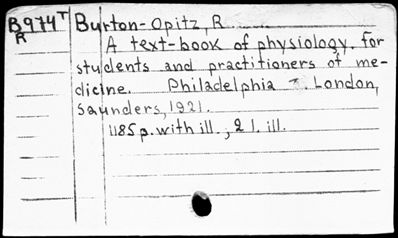 B974T Burton-Opitz, R
R A text-book of physiology, for
students and practitioners of me-
dicine. Philadelphia & London,
Saunders, 1921.
1185 p. with ill., 2 l. ill.